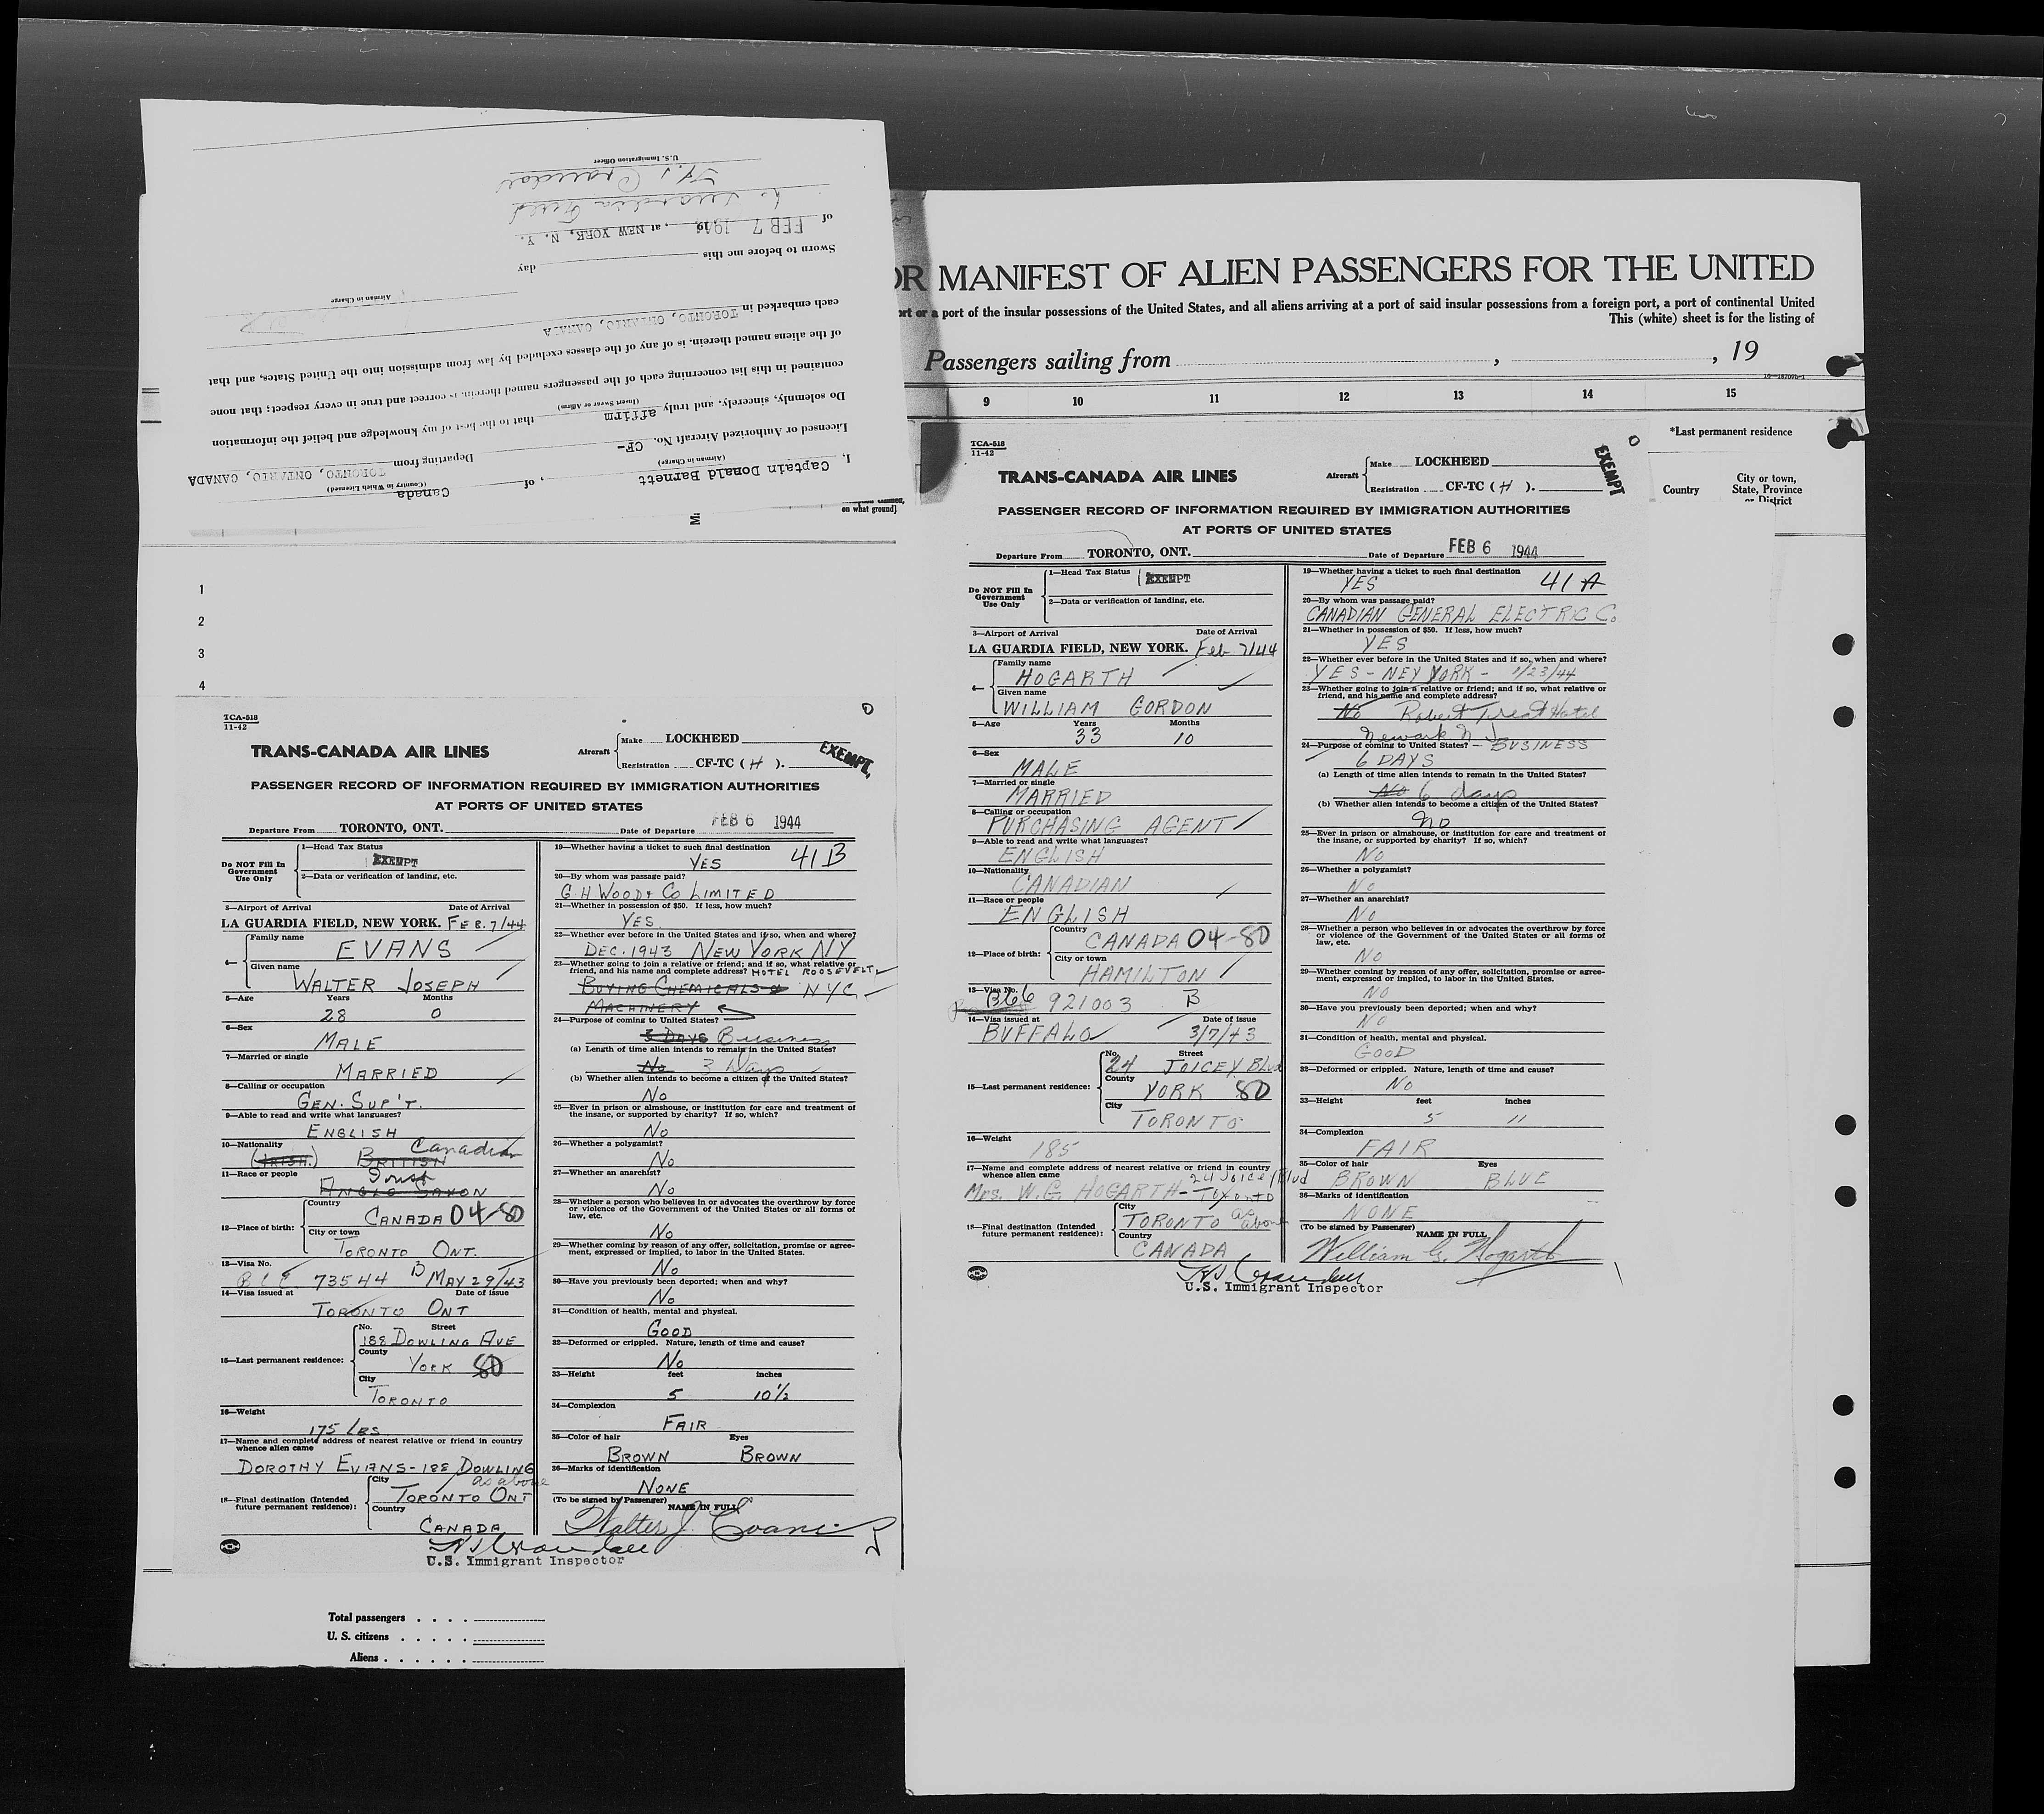 I, Captain Donald Barnett, of Canada
(Airman in Charge) (Country in Which Licensed)
Licensed or Authorized Aircraft No. CF- Departing from TORONTO, ONTARIO, CANADA
Do solemnly, sincerely, and truly affirm that to the best of my knowledge and belief the information
(Insert Swear or Affirm)
contained in this list concerning each of the passengers named therein, is correct and true in every respect; that none
of the aliens named therein, is of any of the classes excluded by law from admission into the United States, and that
each embarked in TORONTO, ONTARIO, CANADA
Airman in Charge
Sworn to before me this day
of FEB 7 1944 19 , at NEW YORK, N. Y.
La Guardia Field
H.S. Crandall
U.S. Immigration Officer
on what ground)
1
2
3
4
TCA-518
11-42
TRANS-CANADA AIR LINES
Aircraft
Make LOCKHEED
Registration CF-TC ( H ).
EXEMPT
PASSENGER RECORD OF INFORMATION REQUIRED BY IMMIGRATION AUTHORITIES
AT PORTS OF UNITED STATES
Departure From TORONTO, ONT. Date of Departure FEB 6 1944
Do NOT Fill In
Government
Use Only
1—Head Tax Status
EXEMPT
2—Data or verification of landing, etc.
3—Airport of Arrival Date of Arrival
LA GUARDIA FIELD, NEW YORK. FEB. 7/44
4— Family name
EVANS
Given name
WALTER JOSEPH
5—Age Years Months
28 0
6—Sex
MALE
7—Married or single
MARRIED
8—Calling or occupation
GEN. SUP'T.
9—Able to read and write what languages?
ENGLISH
10—Nationality Canadian
(IRISH) BRITISH
11—Race or people
ANGLO SAXON
12—Place of birth:
Country
CANADA 04-80
City or town
TORONTO ONT.
13—Visa No.
73544 B MAY 29/43
14—Visa issued at Date of issue
TORONTO ONT
15—Last permanent residence:
No. Street
188 DOWLING AVE
County
YORK 80
City
TORONTO
16—Weight
175 LBS
17—Name and complete address of nearest relative or friend in country
whence alien came
DOROTHY EVANS - 188 DOWLING
as above
18—Final destination (Intended
future permanent residence):
City
TORONTO ONT
Country
CANADA
19—Whether having a ticket to such final destination
YES 41 B
20—By whom was passage paid?
G.H. WOOD & CO LIMITED
21—Whether in possession of $50. If less, how much?
YES
22—Whether ever before in the United States and if so, when and where?
DEC. 1943 NEW YORK NY
23—Whether going to join a relative or friend; and if so, what relative or
friend, and his name and complete address? HOTEL ROOSEVELT,
BUYING CHEMICALS & NYC
MACHINERY
24—Purpose of coming to United States?
3 DAYS Business
(a) Length of time alien intends to remain in the United States?
No 3 Days
(b) Whether alien intends to become a citizen of the United States?
No
25—Ever in prison or almshouse, or institution for care and treatment of
the insane, or supported by charity? If so, which?
No
26—Whether a polygamist?
No
27—Whether an anarchist?
No
28—Whether a person who believes in or advocates the overthrow by force
or violence of the Government of the United States or all forms of
law, etc.
No
29—Whether coming by reason of any offer, solicitation, promise or agree-
ment, expressed or implied, to labor in the United States.
No
30—Have you previously been deported; when and why?
No
31—Condition of health, mental and physical.
GOOD
32—Deformed or crippled. Nature, length of time and cause?
No
33—Height feet inches
5 10½
34—Complexion
FAIR
35—Color of hair Eyes
BROWN BROWN
36—Marks of identification
NONE
(To be signed by Passenger) NAME IN FULL
Walter J. Evans
H.S. Crandall
U.S. Immigrant Inspector
Total passengers
U. S. citizens
Aliens
OR MANIFEST OF ALIEN PASSENGERS FOR THE UNITED
port or a port of the insular possessions of the United States, and all aliens arriving at a port of said insular possessions from a foreign port, a port of continental United
This (white) sheet is for the listing of
Passengers sailing from , , 19
9 10 11 12 13 14 15
*Last permanent residence
Country
City or town,
State, Province
or District
TCA-518
11-42
TRANS-CANADA AIR LINES
Aircraft
Make LOCKHEED
Registration CF-TC ( H ).
EXEMPT
PASSENGER RECORD OF INFORMATION REQUIRED BY IMMIGRATION AUTHORITIES
AT PORTS OF UNITED STATES
Departure From TORONTO, ONT. Date of Departure FEB 6 1944
Do NOT Fill In
Government
Use Only
1—Head Tax Status
EXEMPT
2—Data or verification of landing, etc.
3—Airport of Arrival Date of Arrival
LA GUARDIA FIELD, NEW YORK. Feb 7/44
4— Family name
HOGARTH
Given name
WILLIAM GORDON
5—Age Years Months
33 10
6—Sex
MALE
7—Married or single
MARRIED
8—Calling or occupation
PURCHASING AGENT
9—Able to read and write what languages?
ENGLISH
10—Nationality
CANADIAN
11—Race or people
ENGLISH
12—Place of birth:
Country
CANADA 04-80
City or town
HAMILTON
13—Visa No.
B66 921003 B
14—Visa issued at Date of issue
BUFFALO 3/7/43
15—Last permanent residence:
No. Street
24 JOICEY BLVD
County
YORK 80
City
TORONTO
16—Weight
185
17—Name and complete address of nearest relative or friend in country
whence alien came 24 Joicey Blvd
MRS. W.G. HOGARTH - Toronto
18—Final destination (Intended
future permanent residence):
City
TORONTO as above
Country
CANADA
19—Whether having a ticket to such final destination
YES 41 A
20—By whom was passage paid?
CANADIAN GENERAL ELECTRIC Co.
21—Whether in possession of $50. If less, how much?
YES
22—Whether ever before in the United States and if so, when and where?
YES - NEY YORK - 1/23/44
23—Whether going to join a relative or friend; and if so, what relative or
friend, and his name and complete address?
No Robert Treat Hotel
Newark N J
24—Purpose of coming to United States? - BUSINESS
6 DAYS
(a) Length of time alien intends to remain in the United States?
No 6 days
(b) Whether alien intends to become a citizen of the United States?
no
25—Ever in prison or almshouse, or institution for care and treatment of
the insane, or supported by charity? If so, which?
No
26—Whether a polygamist?
No
27—Whether an anarchist?
No
28—Whether a person who believes in or advocates the overthrow by force
or violence of the Government of the United States or all forms of
law, etc.
No
29—Whether coming by reason of any offer, solicitation, promise or agree-
ment, expressed or implied, to labor in the United States.
NO
30—Have you previously been deported; when and why?
No
31—Condition of health, mental and physical.
GOOD
32—Deformed or crippled. Nature, length of time and cause?
No
33—Height feet inches
5 11
34—Complexion
FAIR
35—Color of hair Eyes
BROWN BLUE
36—Marks of identification
NONE
(To be signed by Passenger) NAME IN FULL
William G. Hogarth
H.S. Crandall
U.S. Immigrant Inspector